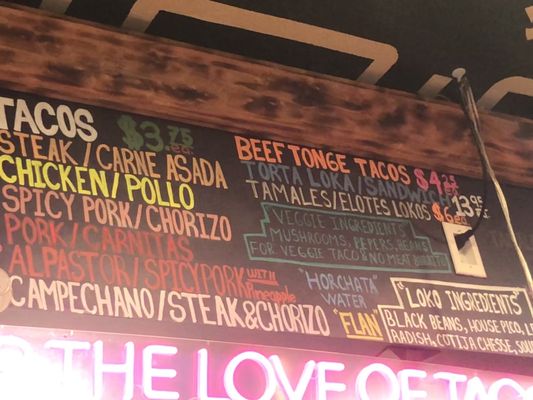 TACOS $3.75 ea.
STEAK/CARNE ASADA
CHICKEN/POLLO
SPICY PORK/CHORIZO
PORK/CARNITAS
ALPASTOR/SPICYPORK WITH Pineapple
CAMPECHANO/STEAK&CHORIZO
BEEF TONGE TACOS $4.25
TORTA LOKA/SANDWICH 13.95
TAMALES/ELOTES LOKOS $6 ea.
VEGGIE INGREDIENTS
MUSHROOMS, PEPERS, BEANS
FOR VEGGIE TACO & NO MEAT BURRITO
"HORCHATA"
WATER
"FLAN"
"LOKO INGREDIENTS"
BLACK BEANS, HOUSE PICO,
RADISH, COTIJA CHESSE,
THE LOVE OF TACO